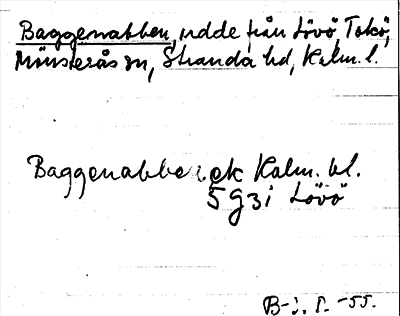 Baggenabben, udde från Lövö, Tokö,
Mönsterås sn, Stranda hd, Kalm. l.
Baggenabben. ek Kalm. bl.
5 g 3 i Lövö
B-j. I. -55.